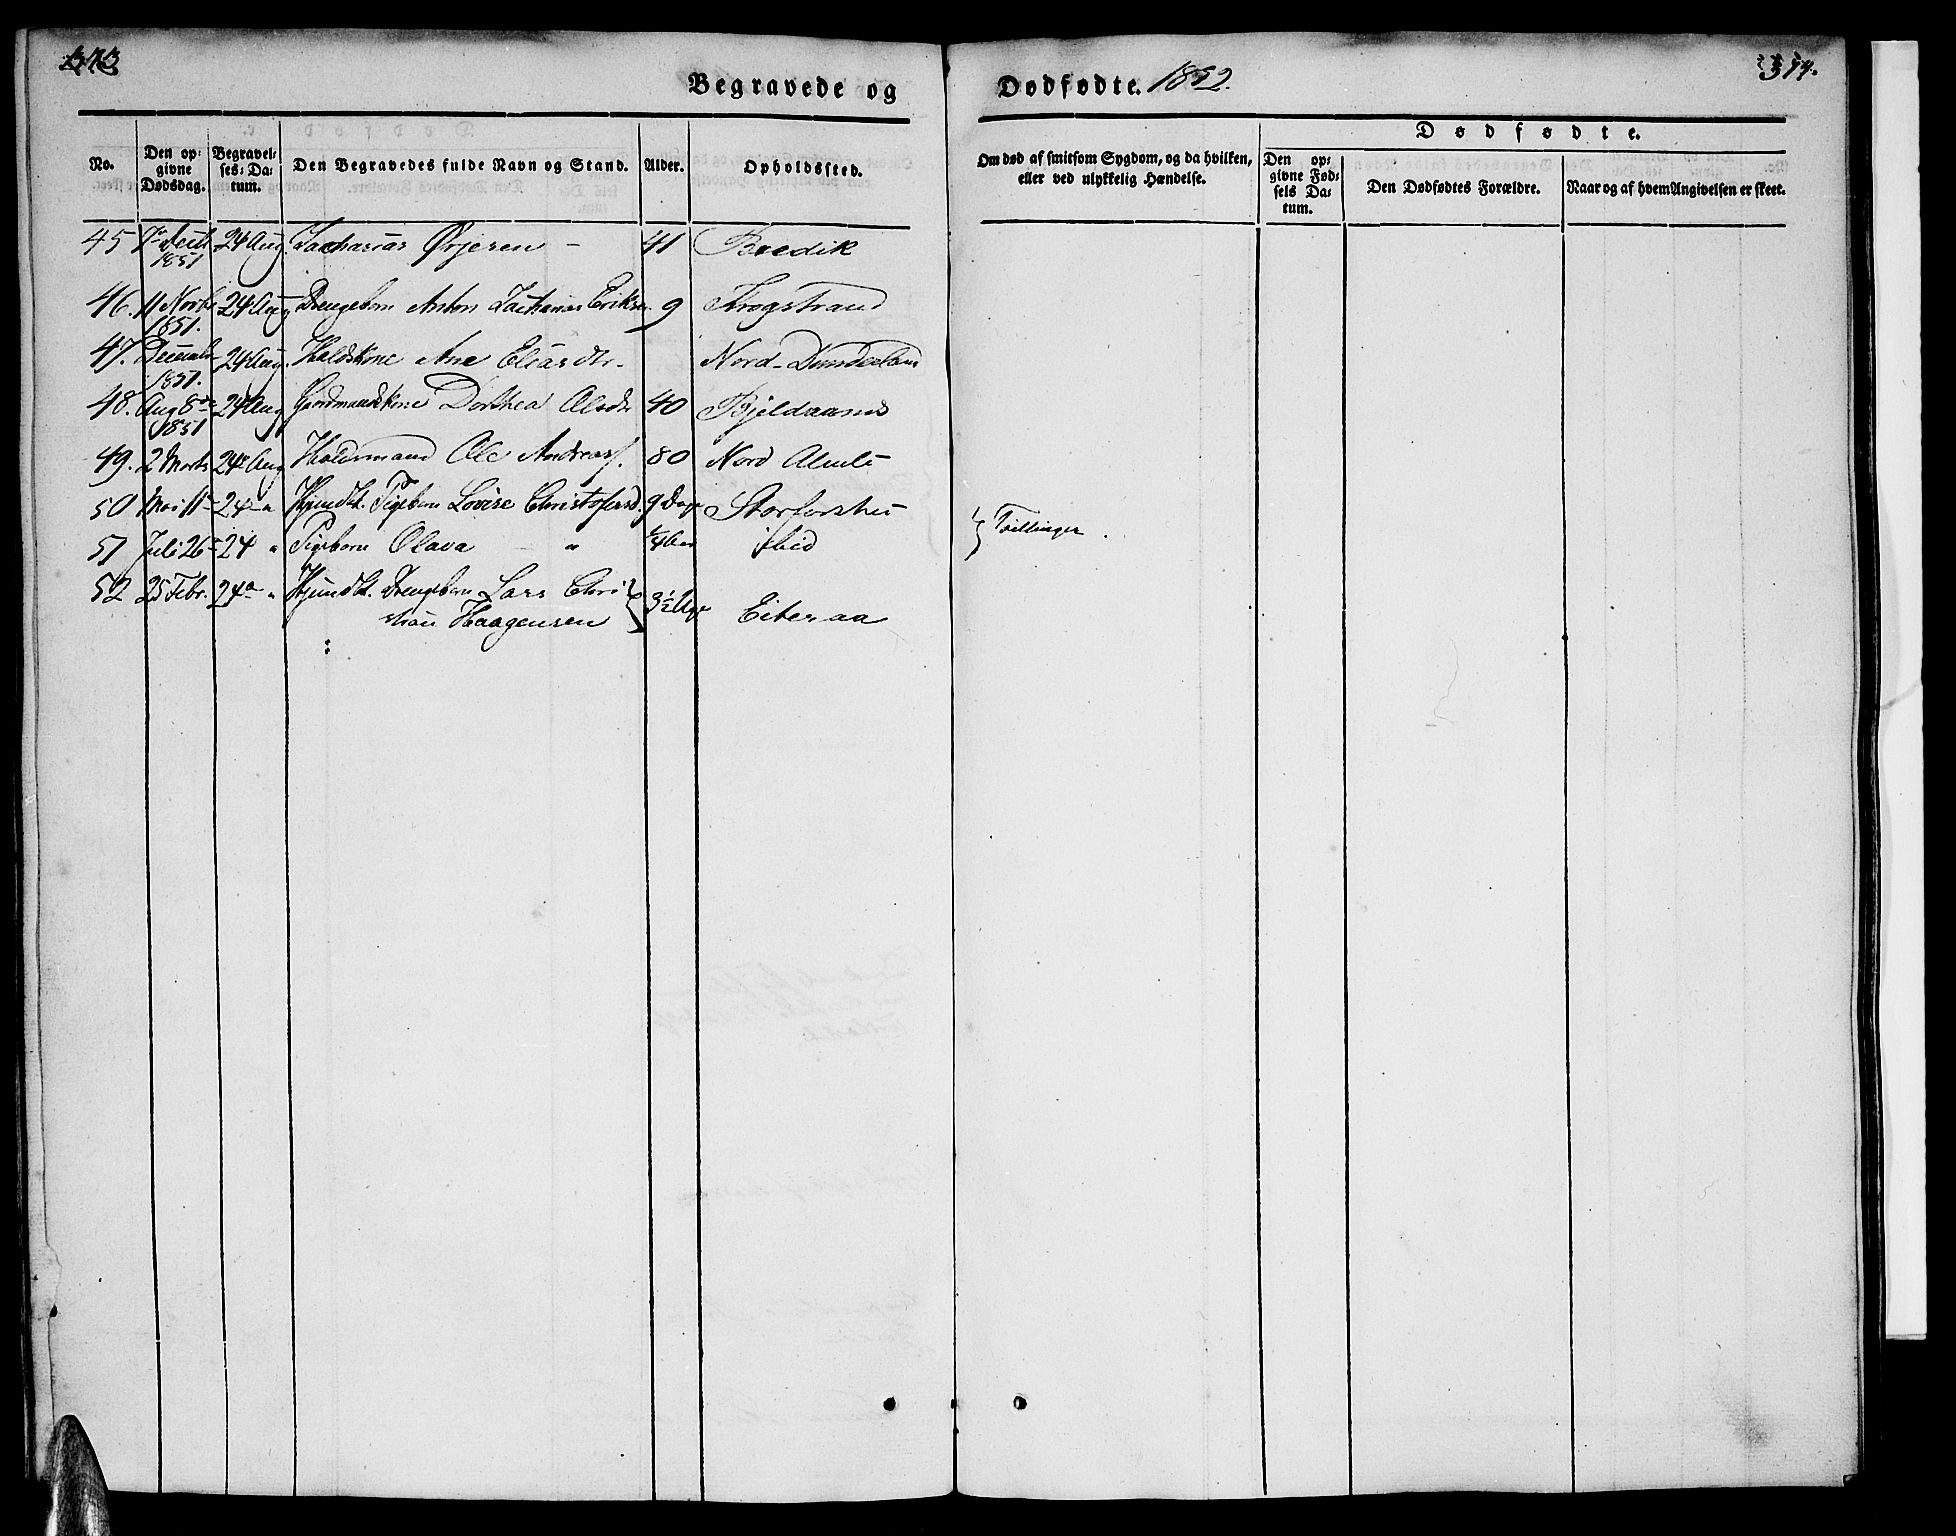 373
374.
Begravede og Dødfødte. 1852.
No. Den opgivne Dødsdag. Begravelses-Datum. Den Begravedes fulde Navn og Stand. Alder. Opholdssted. Om død af smitsom Sygdom, og da hvilken, eller ved ulykkelig Hændelse. Dødfødte. Den opgivne Fødsels Datum. Den Dødfødtes Forældre. Naar og af hvem Angivelsen er skeet.
45 1851 24 Aug. Zacharias Ørjesen - 41 Bredik
46. 11 Novbr 1851. 24 Aug Drengebarn Anton Zacharias Eriksen 9 Frogstrand
47. Decemb 1851. 24 Aug. Huskone Ane Eliasdtr. Nord-Dunderland
48. Aug 8de 1851 24 Aug Gaardmandskone Dorthea Olsdr 40 Bjeldaanes
49. 2 Marts 24 Aug Ole Andreasf. 80 Nord
50 Mai 11 24 " Pigebarn Lovise Christofersd. 9 Dage Storforshei
51 Juli 26 24 " Pigebarn Olava " 1/4 Aar ibid } Tvillinger.
52 25 Febr. 24 " Drengebarn Lars Chri
stian Haagensen } 3 1/2 Uge Eiteraa